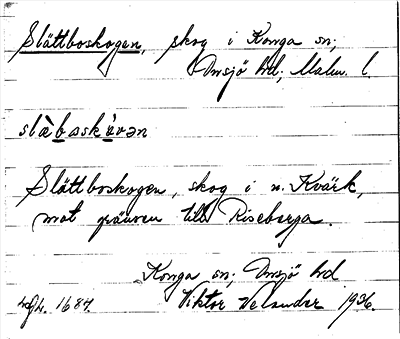 Slättboskogen, skog i Konga sn;
Onsjö hd; Malm. l
slàbaskɑ́vən
Slättboskogen, skog i n. Kvärk,
mot gränsen till Riseberga.
Konga sn; Onsjö hd
1687. Viktor Velander 1936.